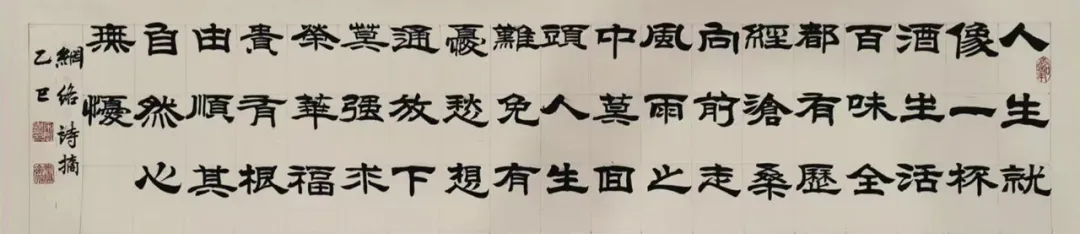 人生就
像一杯
酒生活
百味全
都有歷
經滄桑
向前走
風雨之
中莫回
頭人生
難免有
憂愁想
通放下
莫强求
榮華福
貴有根
由順其
自然心
無懮
網絡詩摘
乙巳